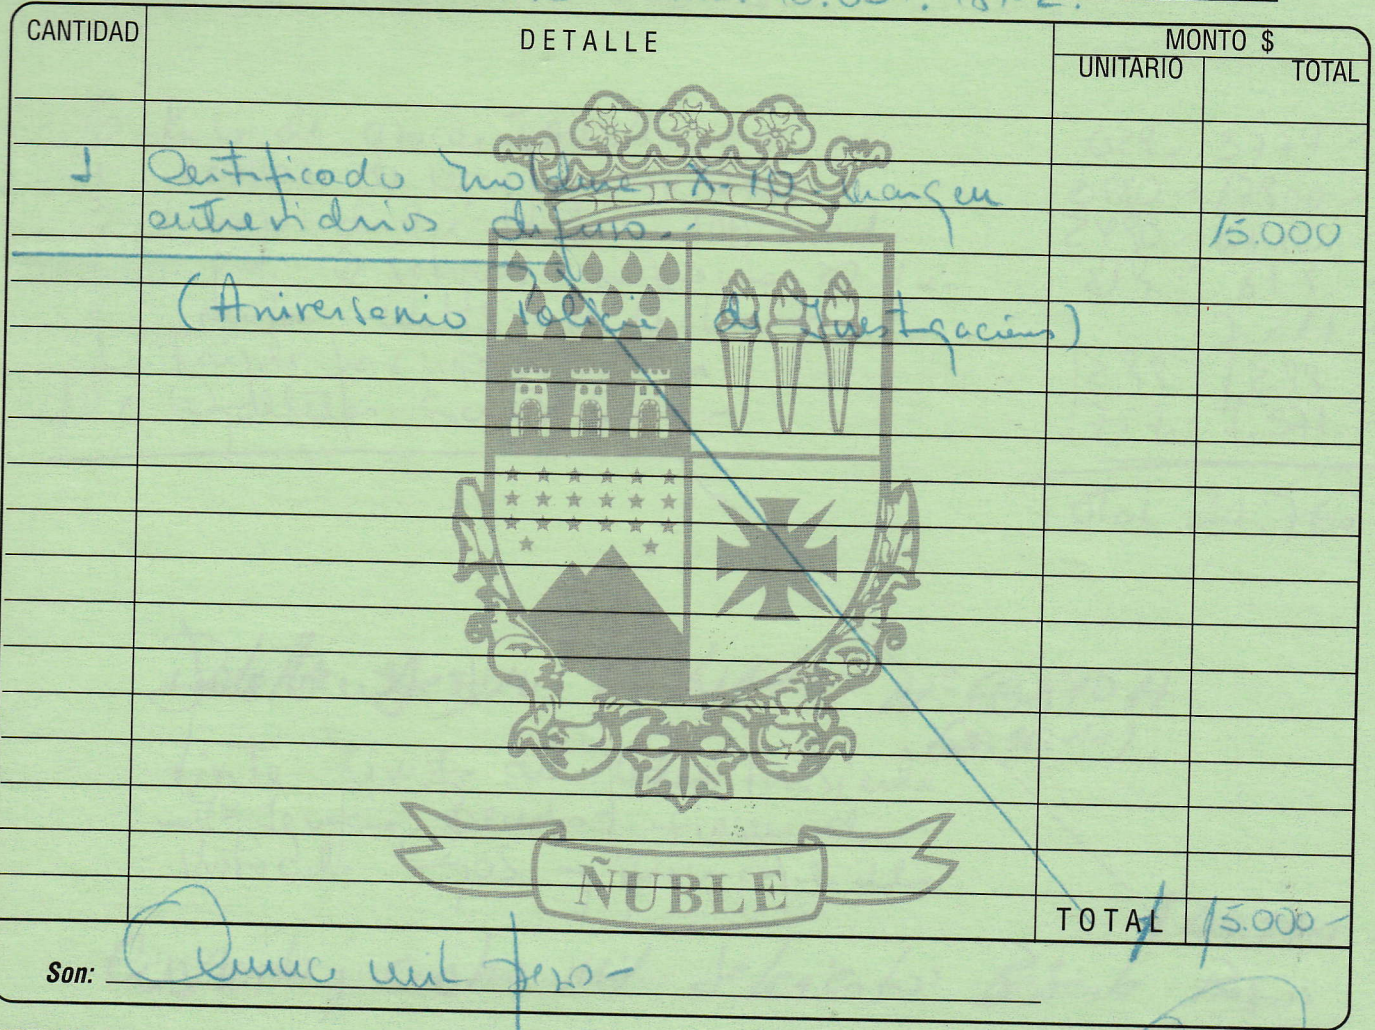 CANTIDAD DETALLE MONTO $
UNITARIO TOTAL
1 Certificado moldura X-10 margen
entrevidrios difuso.- 15.000
(Aniversario Policia de Investigaciones)
ÑUBLE
TOTAL 15.000-
Son: Quince mil pesos-